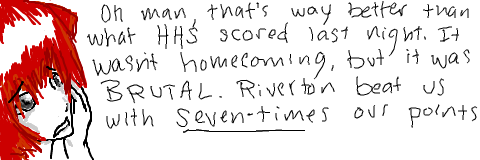 Oh man, that's way better than
what HHS scored last night. It
wasn't homecoming, but it was
BRUTAL. Riverton beat us
with seven-times our points